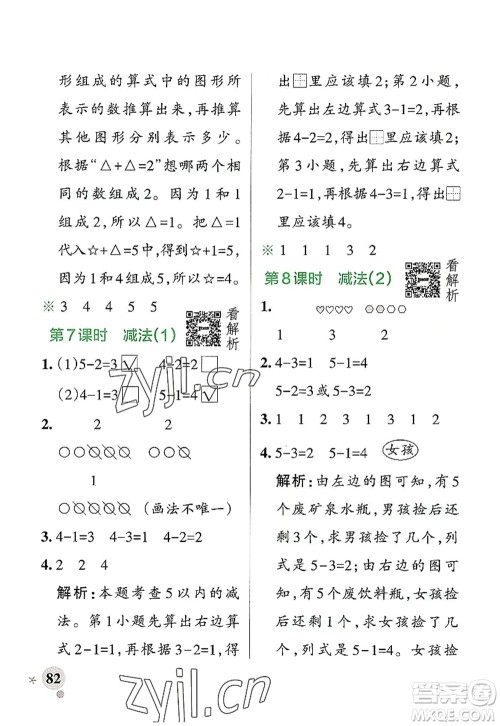 形组成的算式中的图形所
表示的数推算出来，再推算
其他图形分别表示多少。
根据“△+△=2”想哪两个相
同的数组成2。因为1和1
组成2，所以△=1。把△=1
代入☆+△=5，得到☆+1=5，
因为1和4组成5，所以
☆=4。
※ 3 4 4 5 5
第7课时 减法(1)
看解析
1. (1)5-2=3☑ 4-2=2□
(2)4-1=3□ 5-1=4☑
2.
2 1
(画法不唯一)
3. 4-1=3 4-3=1 5-3=2
4. 2 2 4
解析：本题考查5以内的减
法。第1小题先算出右边算
式3-1=2，再根据4-2=2，得
出□里应该填2；第2小题，
先算出左边算式3-1=2，再
根据4-2=2，得出□里应该
填2；第3小题，先算出右
边算式2-1=1，再根据4-3=1，得
出□里应该填4。
※ 1 1 1 3 2
第8课时 减法(2)
看解析
1.
1 3 2
2. 4-3=1 5-1=4
5-3=2或5-2=3
3. 1 2 1 3 1 3 1 2
4. 5-3=2 5-1=4 女孩
解析：由左边的图可知，有
5个废矿泉水瓶，男孩捡后
还剩3个，求男孩捡了几个，
列式是5-3=2；由右边的图
可知，有5个废饮料瓶，女
孩捡后还剩1个，求女孩捡
了几个，列式是5-1=4。女孩捡
82
zyjl.cn
zyjl.cn
作业精灵